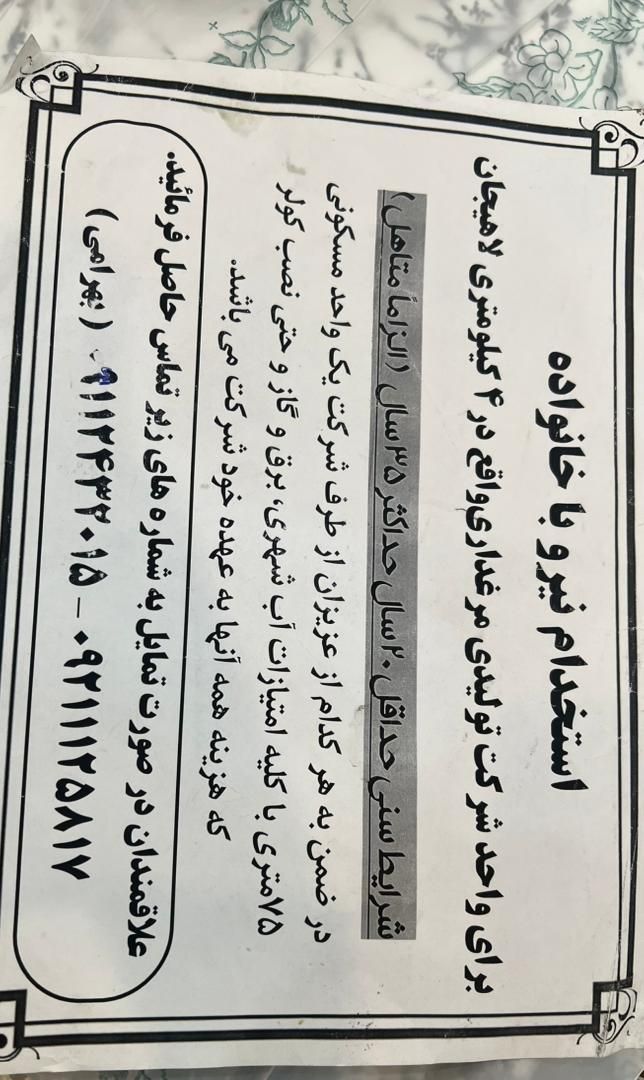 استخدام نیرو با خانواده
برای واحد شرکت تولیدی مرغداری واقع در ۴ کیلومتری لاهیجان
شرایط سنی حداقل ۲۰ سال حداکثر ۳۵ سال (الزاماً متاهل)
در ضمن به هر کدام از عزیزان از طرف شرکت یک واحد مسکونی
۷۵ متری با کلیه امتیازات آب شهری، برق و گاز و حتی نصب کولر
که هزینه همه آنها به عهده خود شرکت می باشد.
علاقمندان در صورت تمایل به شماره های زیر تماس حاصل فرمائید.
۰۹۲۱۱۱۲۵۸۱۷ – ۰۹۱۱۲۴۳۲۰۱۵ (بهرامی)